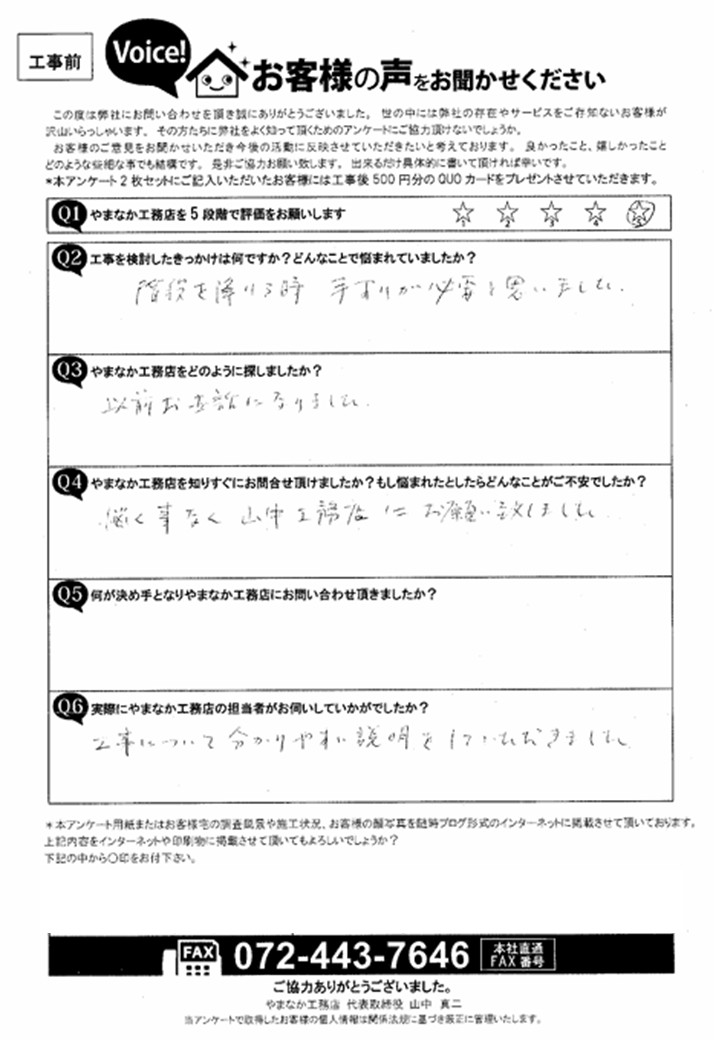 工事前
Voice!
お客様の声をお聞かせください
この度は弊社にお問い合わせを頂き誠にありがとうございました。 世の中には弊社の存在やサービスをご存知ないお客様が
沢山いらっしゃいます。 その方たちに弊社をよく知って頂くためのアンケートにご協力頂けないでしょうか。
お客様のご意見をお聞かせいただき今後の活動に反映させていただきたいと考えております。 良かったこと、嬉しかったこと
どのような些細な事でも結構です。 是非ご協力お願い致します。 出来るだけ具体的に書いて頂ければ幸いです。
*本アンケート2枚セットにご記入いただいたお客様には工事後500円分のQUOカードをプレゼントさせていただきます。
Q1 やまなか工務店を5段階で評価をお願いします ☆1 ☆2 ☆3 ☆4 ☆5
Q2 工事を検討したきっかけは何ですか?どんなことで悩まれていましたか?
階段を降りる時 手すりが必要と思いました.
Q3 やまなか工務店をどのように探しましたか?
以前お世話になりました.
Q4 やまなか工務店を知りすぐにお問合せ頂けましたか?もし悩まれたとしたらどんなことがご不安でしたか?
悩く事なく 山中工務店に お願い致しました
Q5 何が決め手となりやまなか工務店にお問い合わせ頂きましたか?
Q6 実際にやまなか工務店の担当者がお伺いしていかがでしたか?
工事について分かりやすい説明を行いただきました
*本アンケート用紙またはお客様宅の調査風景や施工状況、お客様の顔写真を随時ブログ形式のインターネットに掲載させて頂いております。
上記内容をインターネットや印刷物に掲載させて頂いてもよろしいでしょうか?
下記の中から○印をお付下さい。
FAX 072-443-7646 本社直通
FAX番号
ご協力ありがとうございました。
やまなか工務店 代表取締役 山中 真二
当アンケートで取得したお客様の個人情報は関係法規に基づき厳正に管理いたします。